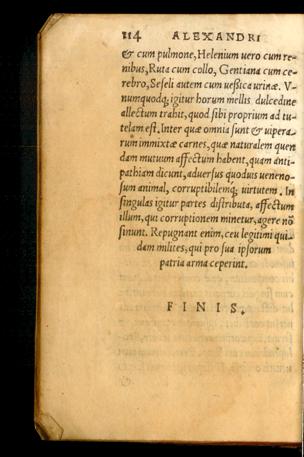 114 ALEXANDRI
& cum pulmone, Helenium uero cum re-
nibus, Ruta cum collo, Gentiana cum ce-
rebro, Seseli autem cum uesica urinæ. V-
numquodq; igitur horum mellis dulcedine
allectum trahit, quod sibi proprium ad tu-
telam est. Inter quæ omnia sunt & uipera-
rum immixtæ carnes, quæ naturalem quen
dam mutuum affectum habent, quam anti-
pathiam dicunt, aduersus quoduis ueneno-
sum animal, corruptibilemq; uirtutem. In
singulas igitur partes distributa, affectum
illum, qui corruptionem minetur, agere nō
sinunt. Repugnant enim, ceu legitimi qui-
dam milites, qui pro sua ipsorum
patria arma ceperint.
FINIS.